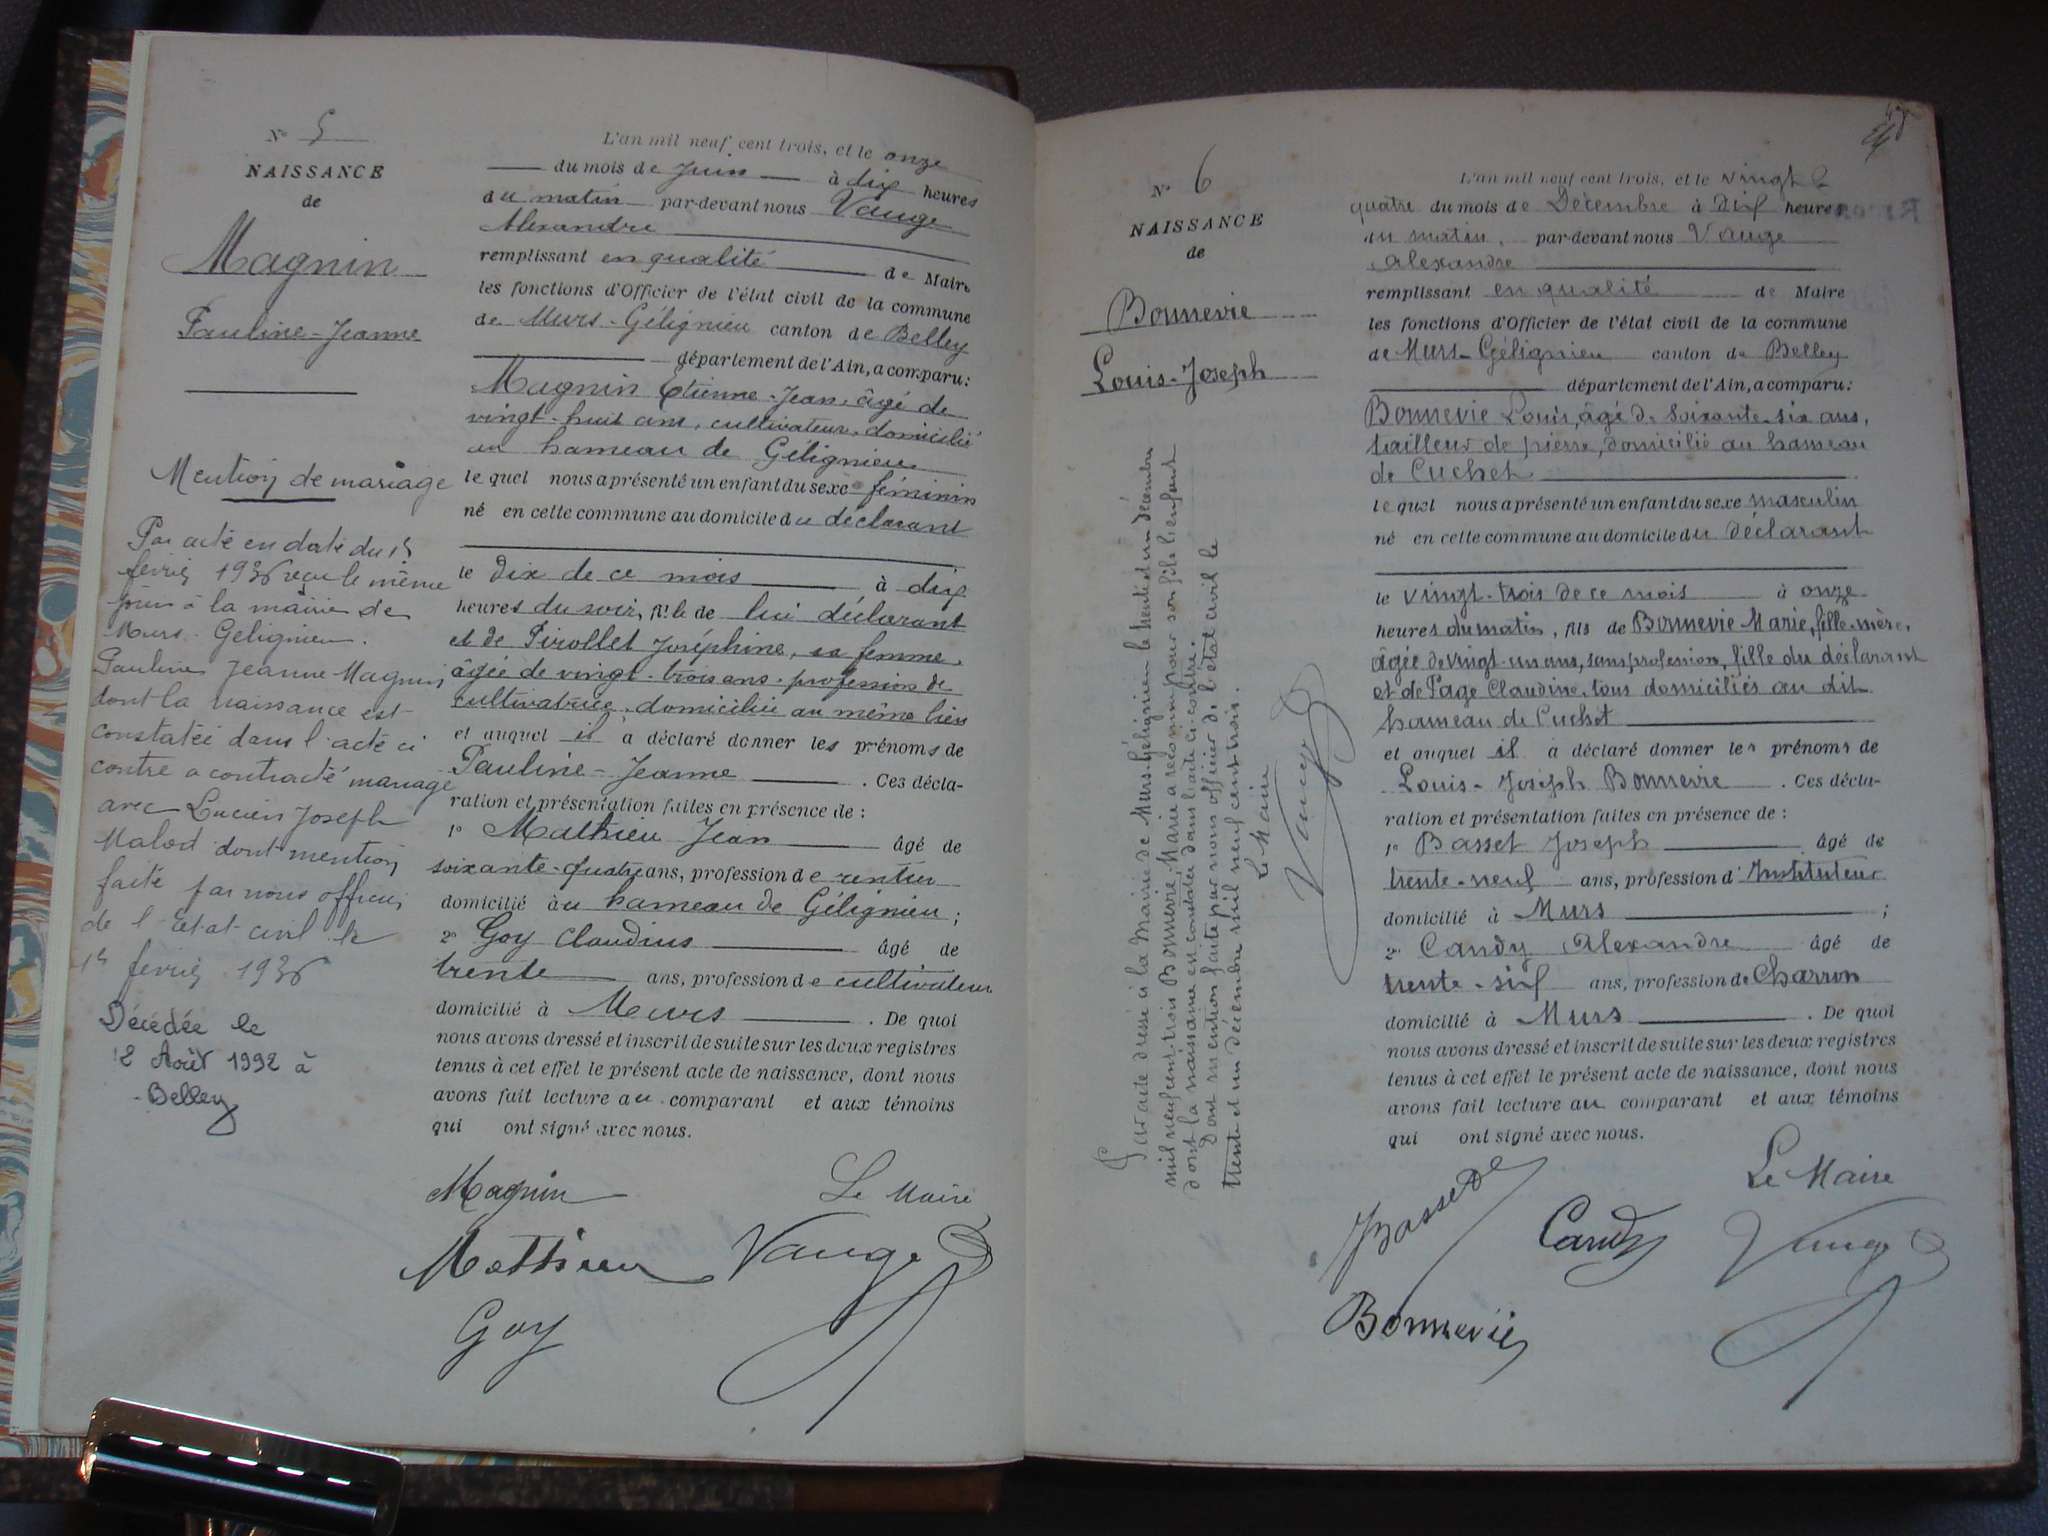 N° 5
NAISSANCE
de
Magnin
Pauline-Jeanne
Mention de mariage
Par acte en date du 15
février 1936 reçu le même
jour à la mairie de
Murs-Gélignieu.
Pauline Jeanne Magnin
dont la naissance est
constatée dans l'acte ci
contre a contracté mariage
avec Lucien Joseph
dont mention
faite par nous officier
de l'état civil le
15 février 1936
Décédée le
12 Août 1992 à
Belley
L'an mil neuf cent trois, et le onze
du mois de Juin à dix heures
du matin par-devant nous Vauge
Alexandre
remplissant en qualité de Maire
les fonctions d'Officier de l'état civil de la commune
de Murs-Gélignieu canton de Belley
département de l'Ain, a comparu:
Magnin Etienne-Jean, âgé de
vingt-huit ans, cultivateur, domicilié
au hameau de Gélignieu
le quel nous a présenté un enfant du sexe féminin
né en cette commune au domicile du déclarant
le dix de ce mois à dix
heures du soir, fille de lui déclarant
et de Pirollet Joséphine, sa femme,
âgée de vingt-trois ans, profession de
cultivatrice, domiciliée au même lieu
et auquel il a déclaré donner les prénoms de
Pauline-Jeanne. Ces décla-
ration et présentation faites en présence de :
1° Mathieu Jean âgé de
soixante-quatre ans, profession de rentier
domicilié au hameau de Gélignieu;
2° Goy Claudius âgé de
trente ans, profession de cultivateur
domicilié à Murs. De quoi
nous avons dressé et inscrit de suite sur les deux registres
tenus à cet effet le présent acte de naissance, dont nous
avons fait lecture au comparant et aux témoins
qui ont signé avec nous.
Magnin Le Maire
Mathieu Vauge
Goy
N° 6
NAISSANCE
de
Bonnevie
Louis-Joseph
Par acte dressé à la Mairie de Murs-Gélignieu le trente et un décembre
mil neuf cent trois Bonnevie Marie a reconnu pour son fils l'enfant
dont la naissance est constatée dans l'acte ci-contre.
Dont mention faite par nous officier de l'état civil le
trente et un décembre mil neuf cent trois.
Le Maire
Vauge
L'an mil neuf cent trois, et le vingt
quatre du mois de Décembre à dix heures
du matin, par-devant nous Vauge
Alexandre
remplissant en qualité de Maire
les fonctions d'Officier de l'état civil de la commune
de Murs-Gélignieu canton de Belley
département de l'Ain, a comparu:
Bonnevie Louis, âgé de soixante-six ans,
tailleur de pierre, domicilié au hameau
de Cuchet
le quel nous a présenté un enfant du sexe masculin
né en cette commune au domicile du déclarant
le vingt-trois de ce mois à onze
heures du matin, fils de Bonnevie Marie, fille-mère,
âgée de vingt-un ans, sans profession, fille du déclarant
et de Page Claudine, tous domiciliés au dit
hameau de Cuchet
et auquel il a déclaré donner les prénoms de
Louis-Joseph Bonnevie. Ces décla-
ration et présentation faites en présence de :
1° Basset Joseph âgé de
trente-neuf ans, profession d'Instituteur
domicilié à Murs;
2° Candy Alexandre âgé de
trente-six ans, profession de Charron
domicilié à Murs. De quoi
nous avons dressé et inscrit de suite sur les deux registres
tenus à cet effet le présent acte de naissance, dont nous
avons fait lecture au comparant et aux témoins
qui ont signé avec nous.
Le Maire
JBasset Candy Vauge
Bonnevie